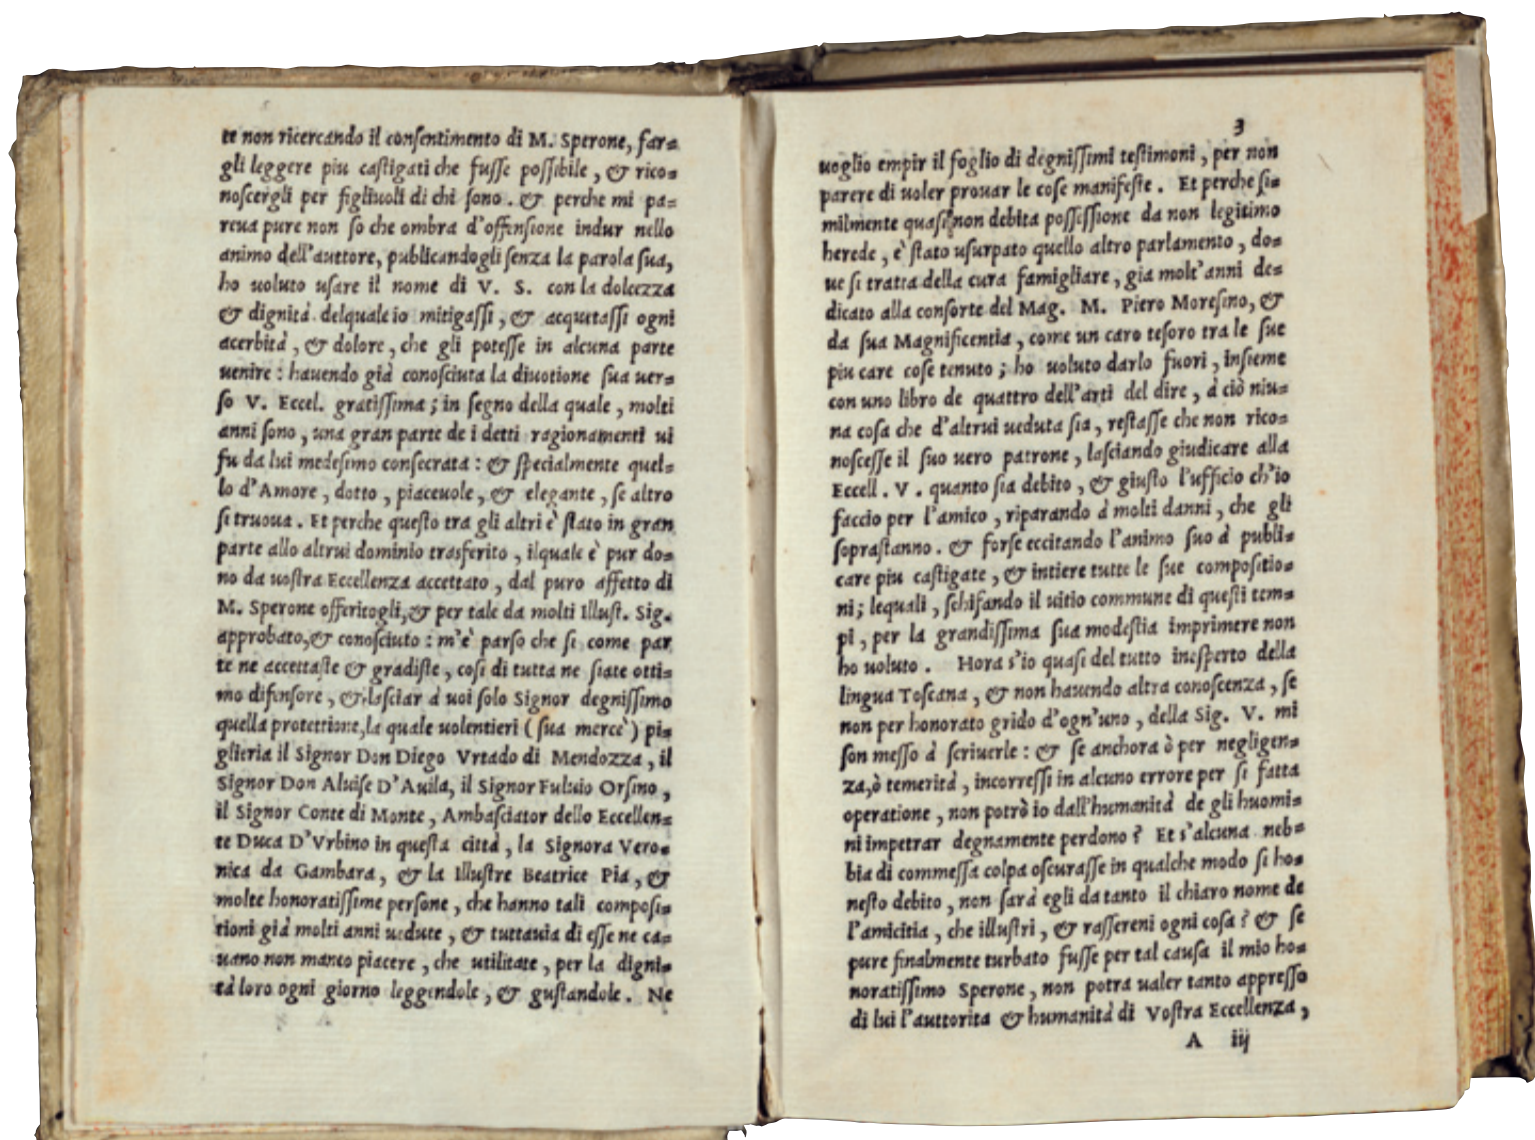 te non ricercando il conſentimento di M. Sperone, far=
gli leggere piu caſtigati che fuſſe poſſibile, & rico=
noſcergli per figliuoli di chi ſono. & perche mi pa=
reua pure non ſo che ombra d'offenſione indur nello
animo dell'auttore, publicandogli ſenza la parola ſua,
ho uoluto uſare il nome di V. S. con la dolcezza
& dignità delquale io mitigaſſi, & acquetaſſi ogni
acerbità, & dolore, che gli poteſſe in alcuna parte
uenire: hauendo già conoſciuta la diuotione ſua uer=
ſo V. Eccel. gratiſſima; in ſegno della quale, molti
anni ſono, una gran parte de i detti ragionamenti ui
fu da lui medeſimo conſecrata: & ſpecialmente quel=
lo d'Amore, dotto, piaceuole, & elegante, ſe altro
ſi truoua. Et perche queſto tra gli altri è ſtato in gran
parte allo altrui dominio trasferito, ilquale è pur do=
no da uoſtra Eccellenza accettato, dal puro affetto di
M. Sperone offeritogli, & per tale da molti Illuſt. Sig.
approbato, & conoſciuto: m'è parſo che ſi come par
te ne accettaſte & gradiſte, coſi di tutta ne ſiate otti=
mo difenſore, & laſciar à uoi ſolo Signor degniſſimo
quella protettione, la quale uolentieri (ſua mercè) pi=
glieria il Signor Don Diego Vrtado di Mendozza, il
Signor Don Aluiſe D'Auila, il Signor Fuluio Orſino,
il Signor Conte di Monte, Ambaſciator dello Eccellen=
te Duca D'Vrbino in queſta città, la Signora Vero=
nica da Gambara, & la Illuſtre Beatrice Pia, &
molte honoratiſſime perſone, che hanno tali compoſi=
tioni già molti anni uedute, & tuttauia di eſſe ne ca=
uano non manco piacere, che utilitate, per la digni=
tà loro ogni giorno leggendole, & guſtandole. Ne
3
uoglio empir il foglio di degniſſimi teſtimoni, per non
parere di uoler prouar le coſe manifeſte. Et perche ſi=
milmente quaſi non debita poſſeſſione da non legitimo
herede, è ſtato uſurpato quello altro parlamento, do=
ue ſi tratta della cura famigliare, gia molt'anni de=
dicato alla conſorte del Mag. M. Piero Moreſino, &
da ſua Magnificentia, come un caro teſoro tra le ſue
piu care coſe tenuto; ho uoluto darlo fuori, inſieme
con uno libro de quattro dell'arti del dire, à ciò niu=
na coſa che d'altrui ueduta ſia, reſtaſſe che non rico=
noſceſſe il ſuo uero patrone, laſciando giudicare alla
Eccell. V. quanto ſia debito, & giuſto l'ufficio ch'io
faccio per l'amico, riparando à molti danni, che gli
ſopraſtanno. & forſe eccitando l'animo ſuo à publi=
care piu caſtigate, & intiere tutte le ſue compoſitio=
ni; lequali, ſchifando il uitio commune di queſti tem=
pi, per la grandiſſima ſua modeſtia imprimere non
ho uoluto. Hora s'io quaſi del tutto ineſperto della
lingua Toscana, & non hauendo altra conoſcenza, ſe
non per honorato grido d'ogn'uno, della Sig. V. mi
ſon meſſo à ſcriuerle: & ſe anchora ò per negligen=
za, ò temerità, incorreſſi in alcuno errore per ſi fatta
operatione, non potrò io dall'humanità de gli huomi=
ni impetrar degnamente perdono? Et s'alcuna neb=
bia di commeſſa colpa oſcuraſſe in qualche modo ſi ho=
neſto debito, non ſarà egli da tanto il chiaro nome de
l'amicitia, che illuſtri, & raſſereni ogni coſa? & ſe
pure finalmente turbato fuſſe per tal cauſa il mio ho=
noratiſſimo Sperone, non potra ualer tanto appreſſo
di lui l'auttorita & humanità di Voſtra Eccellenza,
A iij